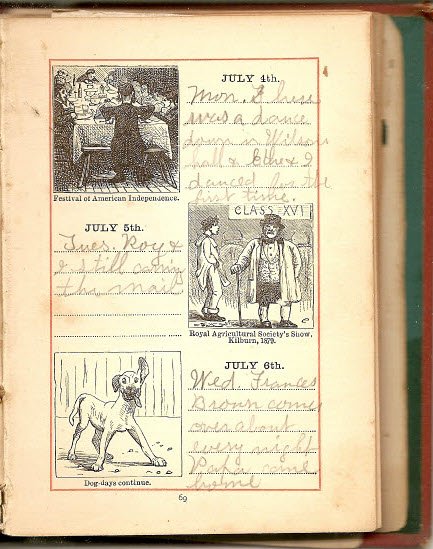 JULY 4th.
Mon. There
was a dance
down in Wilson
hall & Ethe & I
danced for the
first time.
Festival of American Independence.
CLASS XVI
JULY 5th.
Tues. Roy &
I still
the mail
Royal Agricultural Society's Show,
Kilburn, 1879.
JULY 6th.
Wed. Frances
Brown come
over about
every night
Papa came
home
Dog-days continue.
69